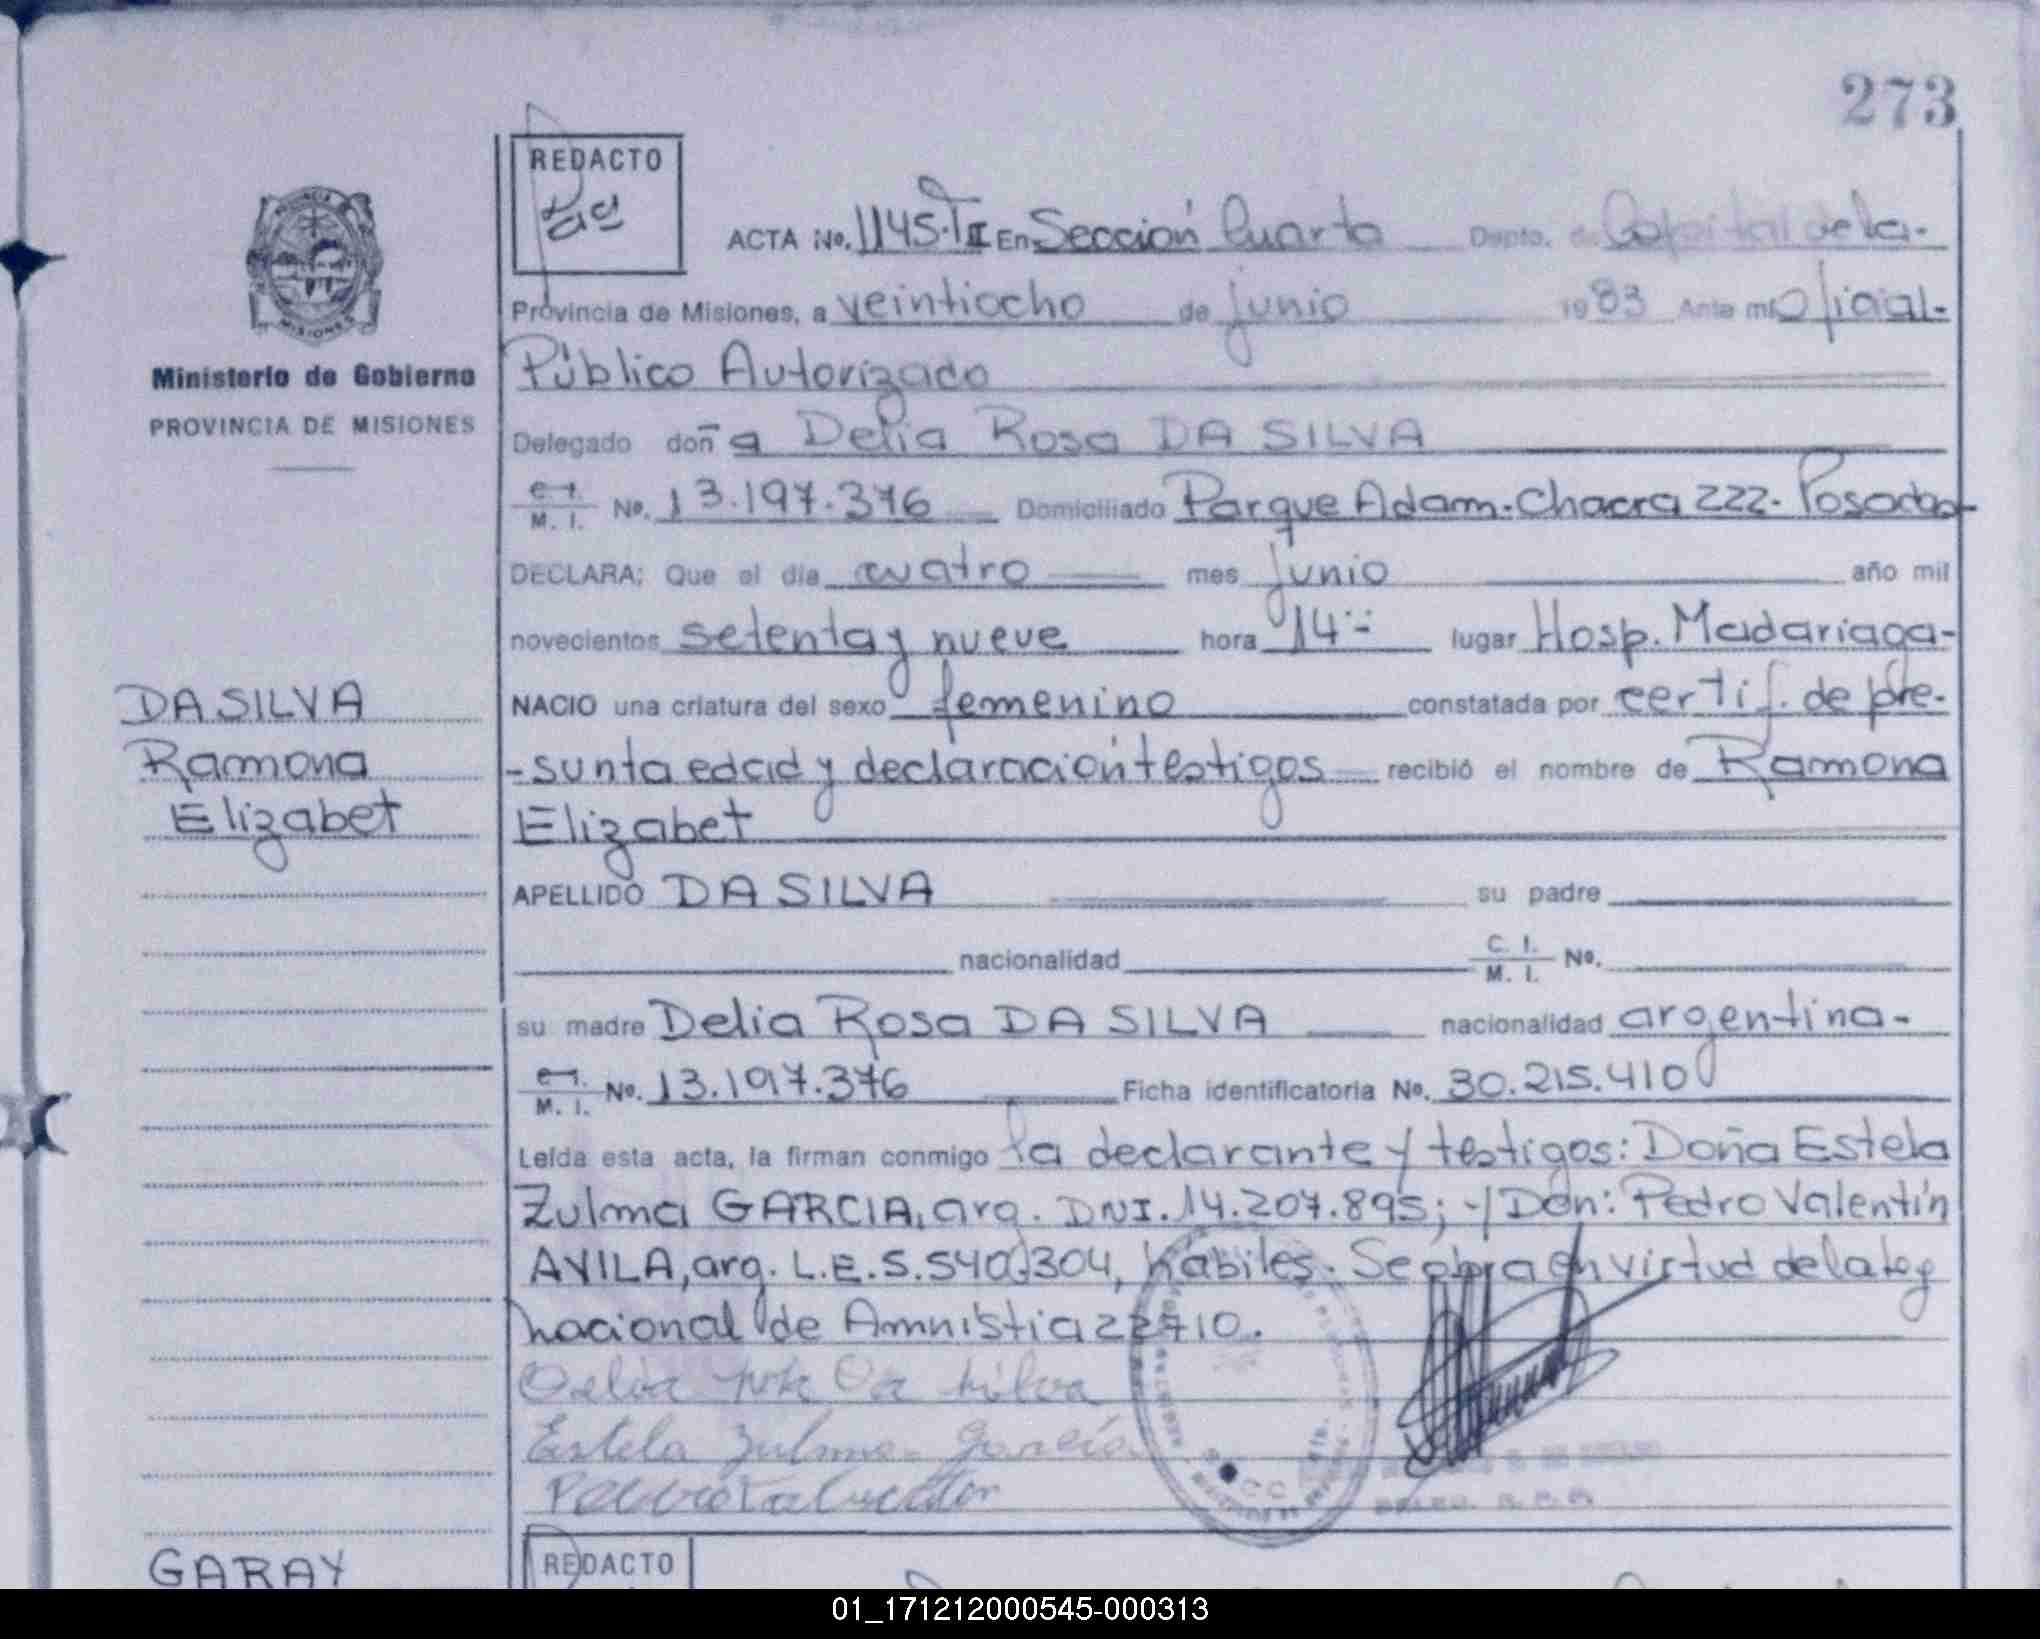 273
REDACTO
ACTA No. 1145·TII En Sección Cuarta Depto. de Capital de la-
Provincia de Misiones, a veintiocho de junio 1983 Ante mí Oficial-
Público Autorizado
Ministerio de Gobierno
PROVINCIA DE MISIONES
Delegado doña Delia Rosa DA SILVA
M. I. No. 13.197.376 Domiciliado Parque Adam-Chacra 222- Posadas-
DECLARA; Que el día cuatro mes junio año mil
novecientos setenta y nueve hora 14 lugar Hosp. Madariaga-
NACIO una criatura del sexo femenino constatada por certif. de pre-
-sunta edad y declaración testigos recibió el nombre de Ramona
Elizabet
DA SILVA
Ramona
Elizabet
APELLIDO DA SILVA su padre
nacionalidad C. I. M. I. No.
su madre Delia Rosa DA SILVA nacionalidad argentina-
M. I. No. 13.197.376 Ficha identificatoria No. 30.215.410
Leída esta acta, la firman conmigo la declarante y testigos: Doña Estela
Zulma GARCIA, arg. DNI. 14.207.895; -y Don: Pedro Valentín
AVILA, arg. L.E. 5.540.304, hábiles. Se obra en virtud de la ley
nacional de Amnistia 22710.
Estela Zulma Garcia
GARAY
REDACTO
01_171212000545-000313